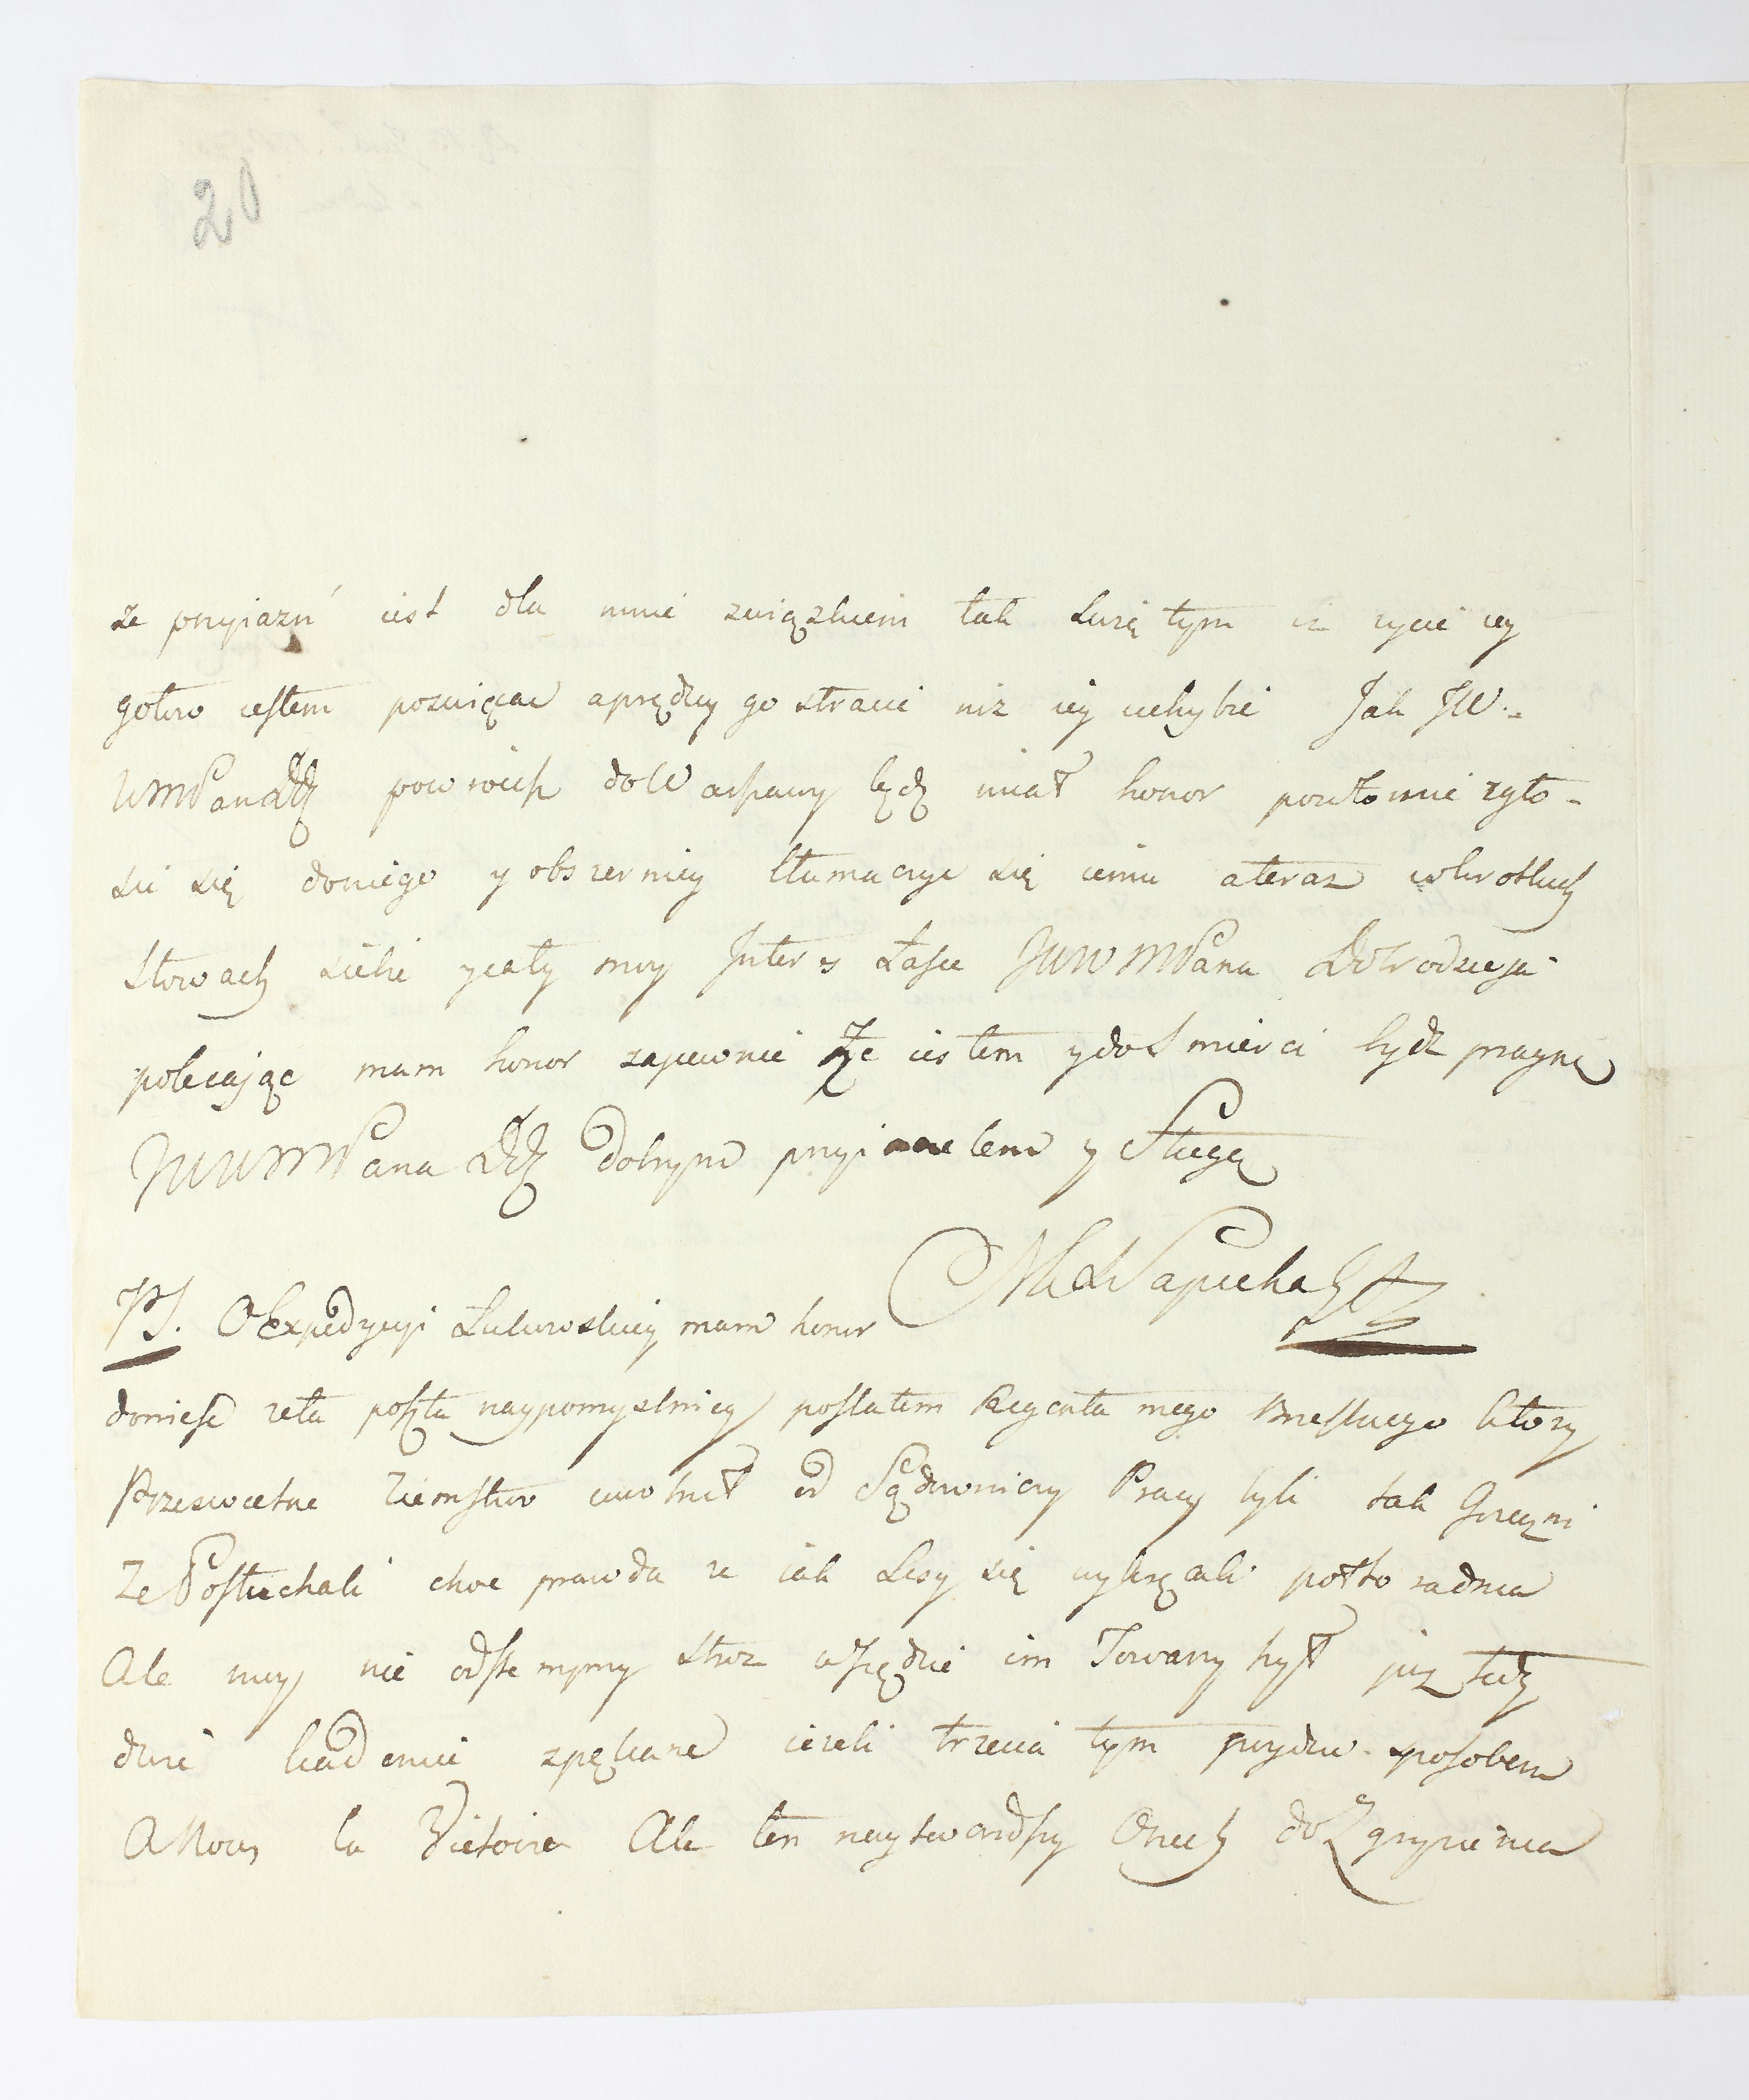 20
że przyiazń iest dla mnie związkiem tak swiętym iz zycie iey
gotow iestem poswięcac aprędzey go stracic niz iey uchybic Jak JW.=
WMPanaDD powrocisz doWarszawy będę miał honor powtornie zgło-
sic się doniego y obszerniey tłumaczyc się iemu ateraz wkrotkich
słowach siebie ycały moy Interes Łasce JWWMPana Dobrodzieja
polecając mam honor zapewnic Że iestem ydoSmierci bydz pragnę
JWWMPana DD dobrym przyiacielem y Sługą
Sapieha
PS. OExpedycyi Łukowskiey mam honor
doniesc zeta poszła naypomyslniey posłałem Regenta mego Brzeskiego ktory
Przeswietne Ziemstwo uwolnił od Sądowniczy Pracy byli tak Grzeczni
Ze Posłuchali choc prawda ze iak Lisy się wykręcali połtoradnia
Ale moy nie odstempny stroz wszędzie im Towarzyszył juz tedy
dwie Kadencie spękane iezeli trzecia tym poydzie sposobem
Allons la Victoire Ale ten naytwardszy Orzech do Zgryzienia